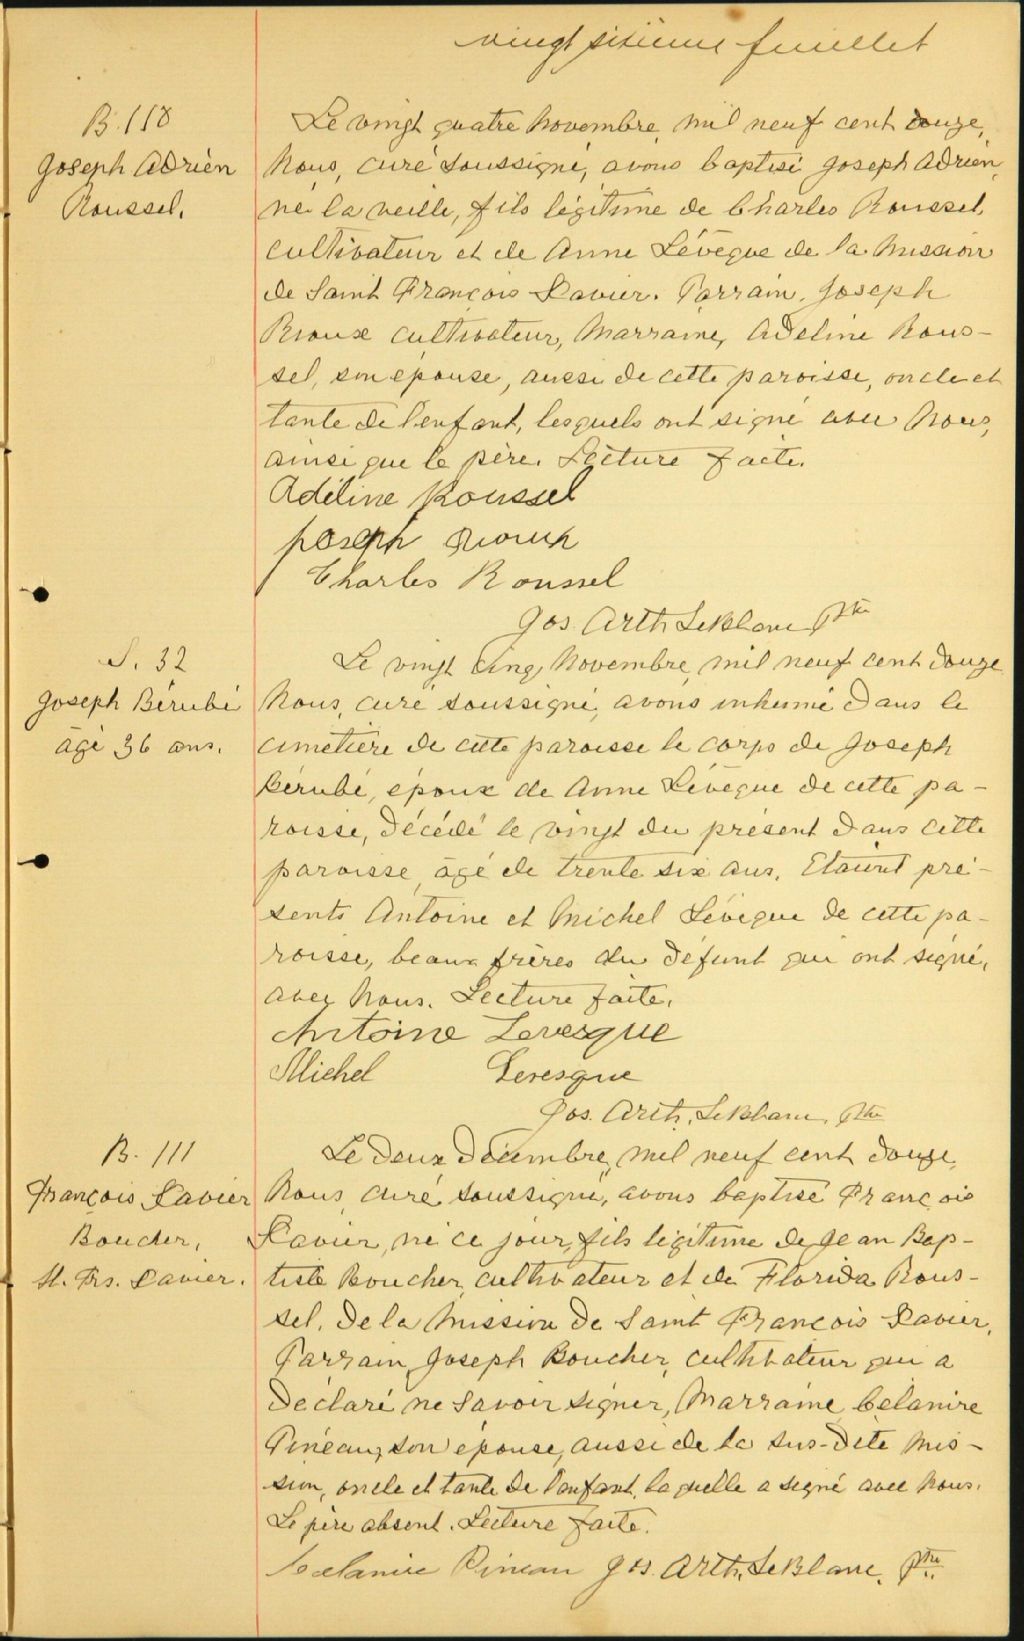 vingt sixième feuillet
B. 110
Joseph Adrien
Roussel.
Le vingt quatre Novembre mil neuf cent douze,
Nous, curé soussigné, avons baptisé Joseph Adrien,
né la veille, fils légitime de Charles Roussel,
cultivateur et de Anne Lévêque de la Mission
de Saint François Xavier. Parrain, Joseph
Rioux cultivateur, Marraine, Adeline Rous-
sel, son épouse, aussi de cette paroisse, oncle et
tante de l'enfant, lesquels ont signé avec Nous,
ainsi que le père. Lecture faite.
Adéline Roussel
Joseph Rioux
Charles Roussel
Jos. Arth. LeBlanc Ptre
S. 32
Joseph Bérubé
âgé 36 ans.
Le vingt cinq Novembre, mil neuf cent douze
Nous, curé soussigné, avons inhumé dans le
cimetière de cette paroisse le corps de Joseph
Bérubé, époux de Anne Lévêque de cette pa-
roisse, décédé le vingt du présent dans cette
paroisse, âgé de trente six ans. Etaient pré-
sents Antoine et Michel Lévêque de cette pa-
roisse, beaux frères du défunt qui ont signé,
avec Nous. Lecture faite.
Antoine Levesque
Michel Levesque
Jos. Arth. LeBlanc, Ptre
B. 111
François Xavier
Boucher,
St. Frs. Xavier.
Le deux Décembre, mil neuf cent douze,
Nous, curé soussigné, avons baptisé François
Xavier, né ce jour, fils légitime de Jean Bap-
tiste Boucher, cultivateur et de Florida Rous-
sel, de la Mission de Saint François Xavier,
Parrain, Joseph Boucher, cultivateur qui a
déclaré ne savoir signer, Marraine Célanire
Pineau, son épouse, aussi de la sus-dite Mis-
sion, oncle et tante de l'enfant, laquelle a signé avec Nous.
Le père absent. Lecture faite.
Célanire Pineau Jos. Arth. LeBlanc, Ptre.